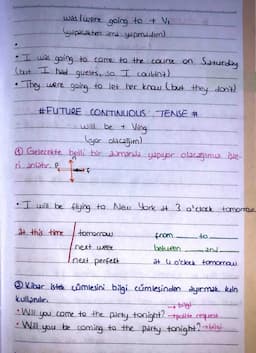 was/were going to + V1
(yapacaktım ama yapmadım)
• I was going to come to the course on Saturday
(but I had guests, so I couldn't)
• They were going to let her know (but they don't)
# FUTURE CONTINUOUS TENSE #
will be + Ving
(yor olacağım)
① Gelecekte belli bir zamanda yapıyor olacağımız işle-
ri anlatır.
• I will be flying to New York at 3 o'clock tomorrow.
at this time
tomorrow
next week
next
from to
between and
at 4 o'clock tomorrow
② Kibar istek cümlesini bilgi cümlesinden ayırmak için
kullanılır.
→ bilgi
• Will you come to the party tonight? → polite request
• Will you be coming to the party tonight? → bilgi